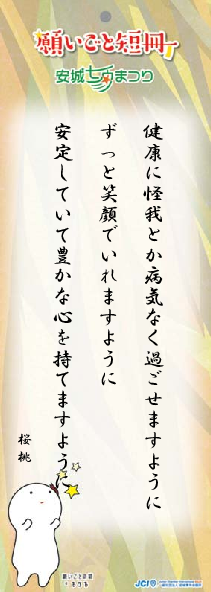 願いごと短冊
安城七夕まつり
健康に怪我とか病気なく過ごせますように
ずっと笑顔でいれますように
安定していて豊かな心を持てますように
桜桃
願いごと短冊
JCI